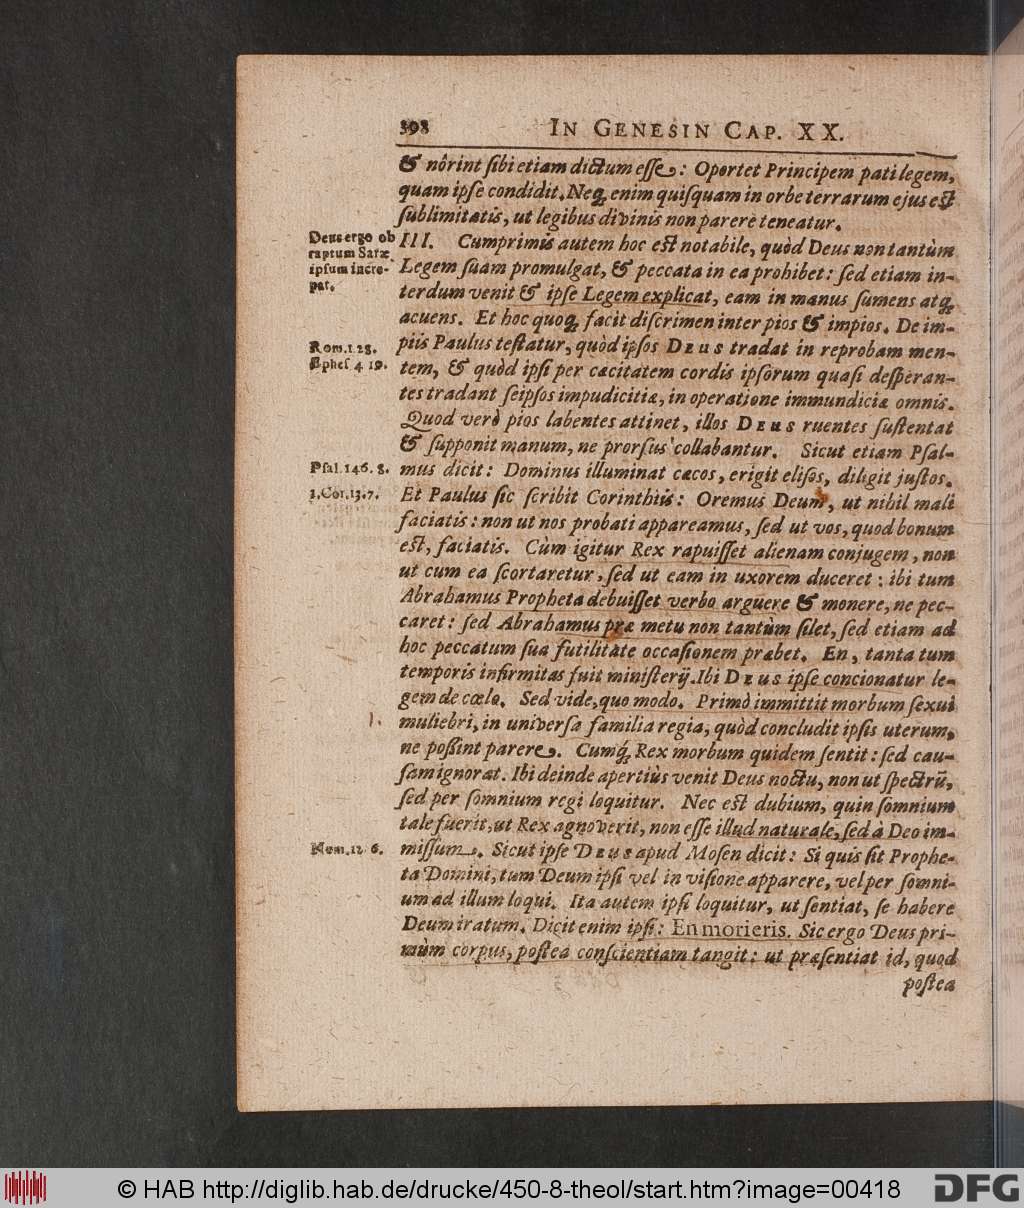 398 IN GENESIN CAP. XX.
& nôrint sibi etiam dictum esse: Oportet Principem pati legem,
quam ipse condidit. Neq; enim quisquam in orbe terrarum ejus est
sublimitatis, ut legibus divinis non parere teneatur.
Deus ergo ob
raptum Saræ
ipsum incre-
pat.
III. Cumprimis autem hoc est notabile, quòd Deus non tantùm
Legem suam promulgat, & peccata in ea prohibet: sed etiam in-
terdum venit & ipse Legem explicat, eam in manus sumens atq;
acuens. Et hoc quoq; facit discrimen inter pios & impios. De im-
Rom. 1. 28.
piis Paulus testatur, quòd ipsos DEUS tradat in reprobam men-
Ephes. 4. 19.
tem, & quòd ipsi per cæcitatem cordis ipsorum quasi desperan-
tes tradant seipsos impudicitiæ, in operatione immundiciæ omnis.
Quod verò pios labentes attinet, illos DEUS ruentes sustentat
& supponit manum, ne prorsus collabantur. Sicut etiam Psal-
Psal. 146. 8.
mus dicit: Dominus illuminat cæcos, erigit elisos, diligit justos.
2. Cor. 13. 7.
Et Paulus sic scribit Corinthiis: Oremus Deum, ut nihil mali
faciatis: non ut nos probati appareamus, sed ut vos, quod bonum
est, faciatis. Cùm igitur Rex rapuisset alienam conjugem, non
ut cum ea scortaretur, sed ut eam in uxorem duceret: ibi tum
Abrahamus Propheta debuisset verbo arguere & monere, ne pec-
caret: sed Abrahamus præ metu non tantùm silet, sed etiam ad
hoc peccatum sua futilitate occasionem præbet. En, tanta tum
temporis infirmitas fuit ministerij. Ibi DEUS ipse concionatur le-
gem de cœlo. Sed vide, quo modo. Primò immittit morbum sexui
muliebri, in universa familia regia, quòd concludit ipsis uterum,
ne possint parere. Cumq́; Rex morbum quidem sentit: sed cau-
sam ignorat. Ibi deinde apertiùs venit Deus noctu, non ut spectrũ,
sed per somnium regi loquitur. Nec est dubium, quin somnium
tale fuerit, ut Rex agnoverit, non esse illud naturale, sed à Deo im-
Num. 12. 6.
missum. Sicut ipse DEUS apud Mosen dicit: Si quis sit Prophe-
ta Domini, tum Deum ipsi vel in visione apparere, vel per somni-
um ad illum loqui. Ita autem ipsi loquitur, ut sentiat, se habere
Deum iratum. Dicit enim ipsi: En morieris. Sic ergo Deus pri-
mùm corpus, postea conscientiam tangit: ut præsentiat id, quod
postea
© HAB http://diglib.hab.de/drucke/450-8-theol/start.htm?image=00418
DFG